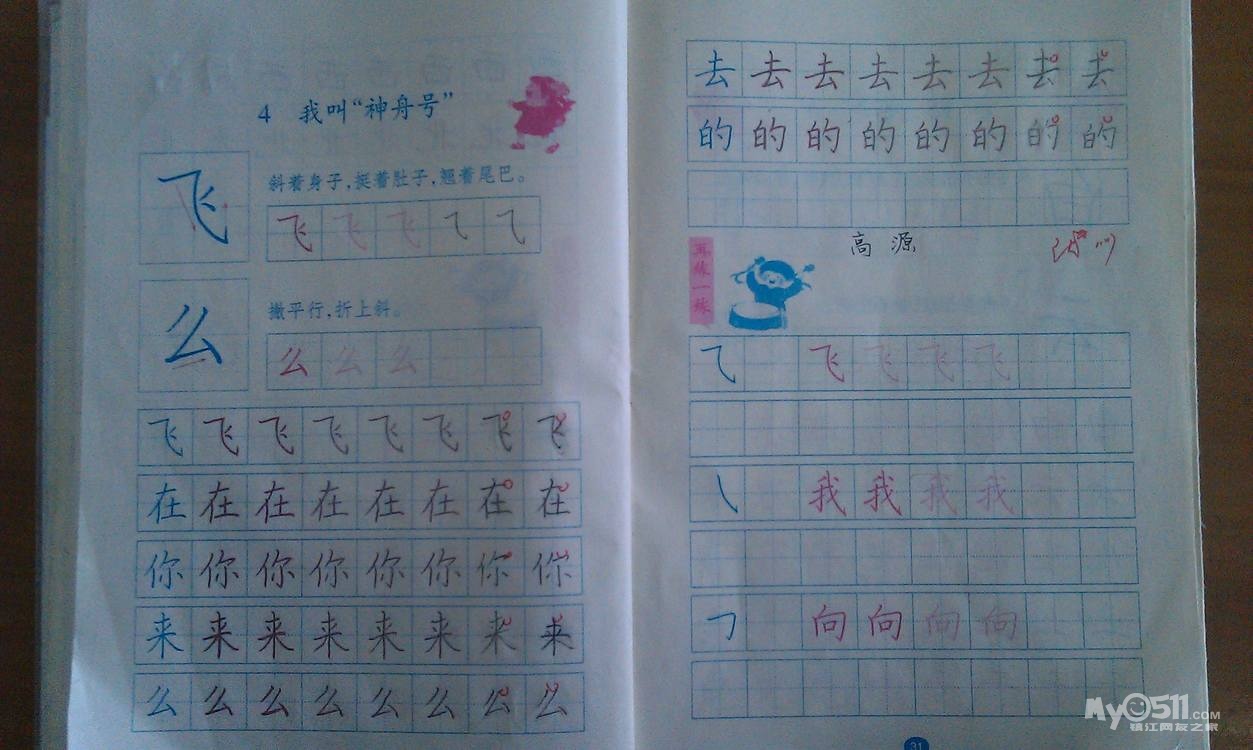 4 我叫“神舟号”
飞
斜着身子，挺着肚子，翘着尾巴。
飞飞飞⺄⺄
么
撇平行，折上斜。
么么么
飞飞飞飞飞飞飞飞
在在在在在在在在
你你你你你你你你
来来来来来来来来
么么么么么么么么
去去去去去去去去
的的的的的的的的
高源
再练一练
⺄ 飞飞飞飞
㇏ 我我我我
𠃌 向向向向
31
My0511.COM
镇江网友之家